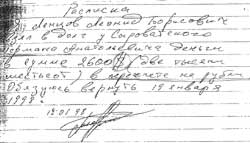 Расписка
Я, Ленцов Леонид Борисович
взял в долг у Сыроватского
Германа Анатольевича деньги
в сумме 2600 $ (две тысячи
шестьсот) в пересчете на рубли
Обязуюсь вернуть 19 января
1998 г.
12.01.98